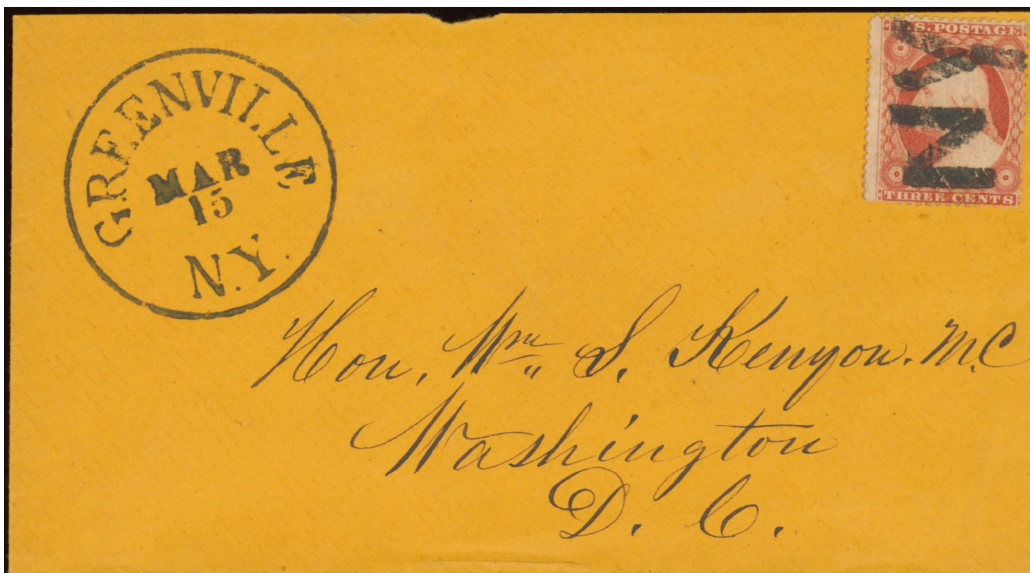 GREENVILLE
MAR
15
N.Y.
U.S. POSTAGE
THREE CENTS
Hon, Wm S. Kenyon. M.C
Washington
D. C.